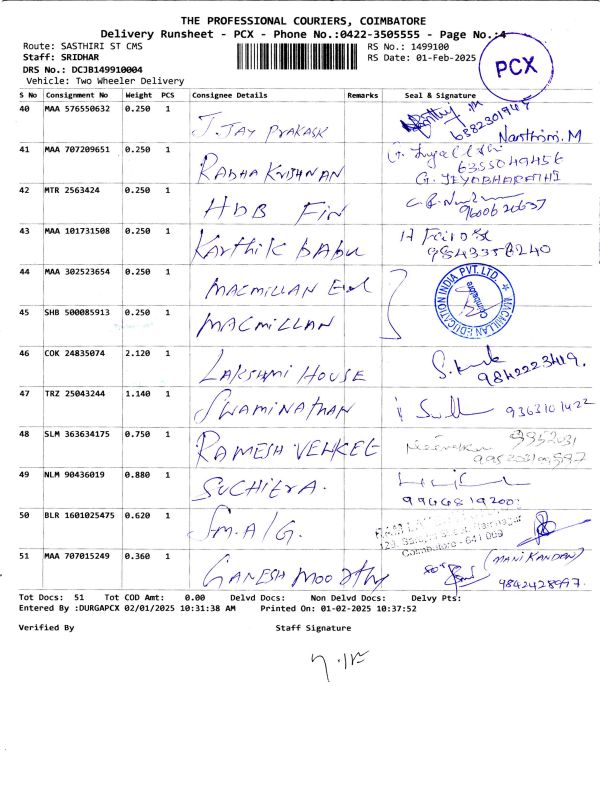 THE PROFESSIONAL COURIERS, COIMBATORE
Delivery Runsheet - PCX - Phone No.:0422-3505555 - Page No.:4
Route: SASTHIRI ST CMS RS No.: 1499100
Staff: SRIDHAR RS Date: 01-Feb-2025
DRS No.: DCJB149910004
Vehicle: Two Wheeler Delivery
PCX
S No Consignment No Weight PCS Consignee Details Remarks Seal & Signature
40 MAA 576550632 0.250 1 J. JAY PRAKASK
Nasthrim. M
41 MAA 707209651 0.250 1 RADHA KRISHNAN
6355049456
G. JEYABHARATHI
42 MTR 2563424 0.250 1 HDB FIN
9600620637
43 MAA 101731508 0.250 1 Karthik BABU
44 MAA 302523654 0.250 1 MACMILLAN
MACMILLAN EDUCATION INDIA PVT. LTD.
Coimbatore
45 SHB 500085913 0.250 1 MACMILLAN
46 COK 24835074 2.120 1 LAKSHMI HOUSE
9842223419.
47 TRZ 25043244 1.140 1 SWAMINATHAN
9363101422
48 SLM 363634175 0.750 1 RAMESH
49 NLM 90436019 0.880 1 SUCHITRA.
50 BLR 1601025475 0.620 1 Sm. A/G.
Coimbatore - 641 009
51 MAA 707015249 0.360 1 GANESH MOORTHY
(MANIKANDAN)
9842428997.
Tot Docs: 51 Tot COD Amt: 0.00 Delvd Docs: Non Delvd Docs: Delvy Pts:
Entered By :DURGAPCX 02/01/2025 10:31:38 AM Printed On: 01-02-2025 10:37:52
Verified By Staff Signature